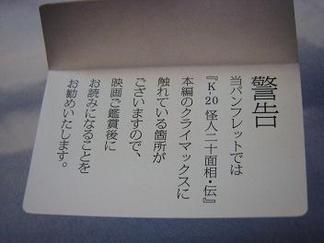 警告
当パンフレットでは
『K-20 怪人二十面相・伝』
本編のクライマックスに
触れている箇所が
ございますので、
映画ご鑑賞後に
お読みになることを
お勧めいたします。